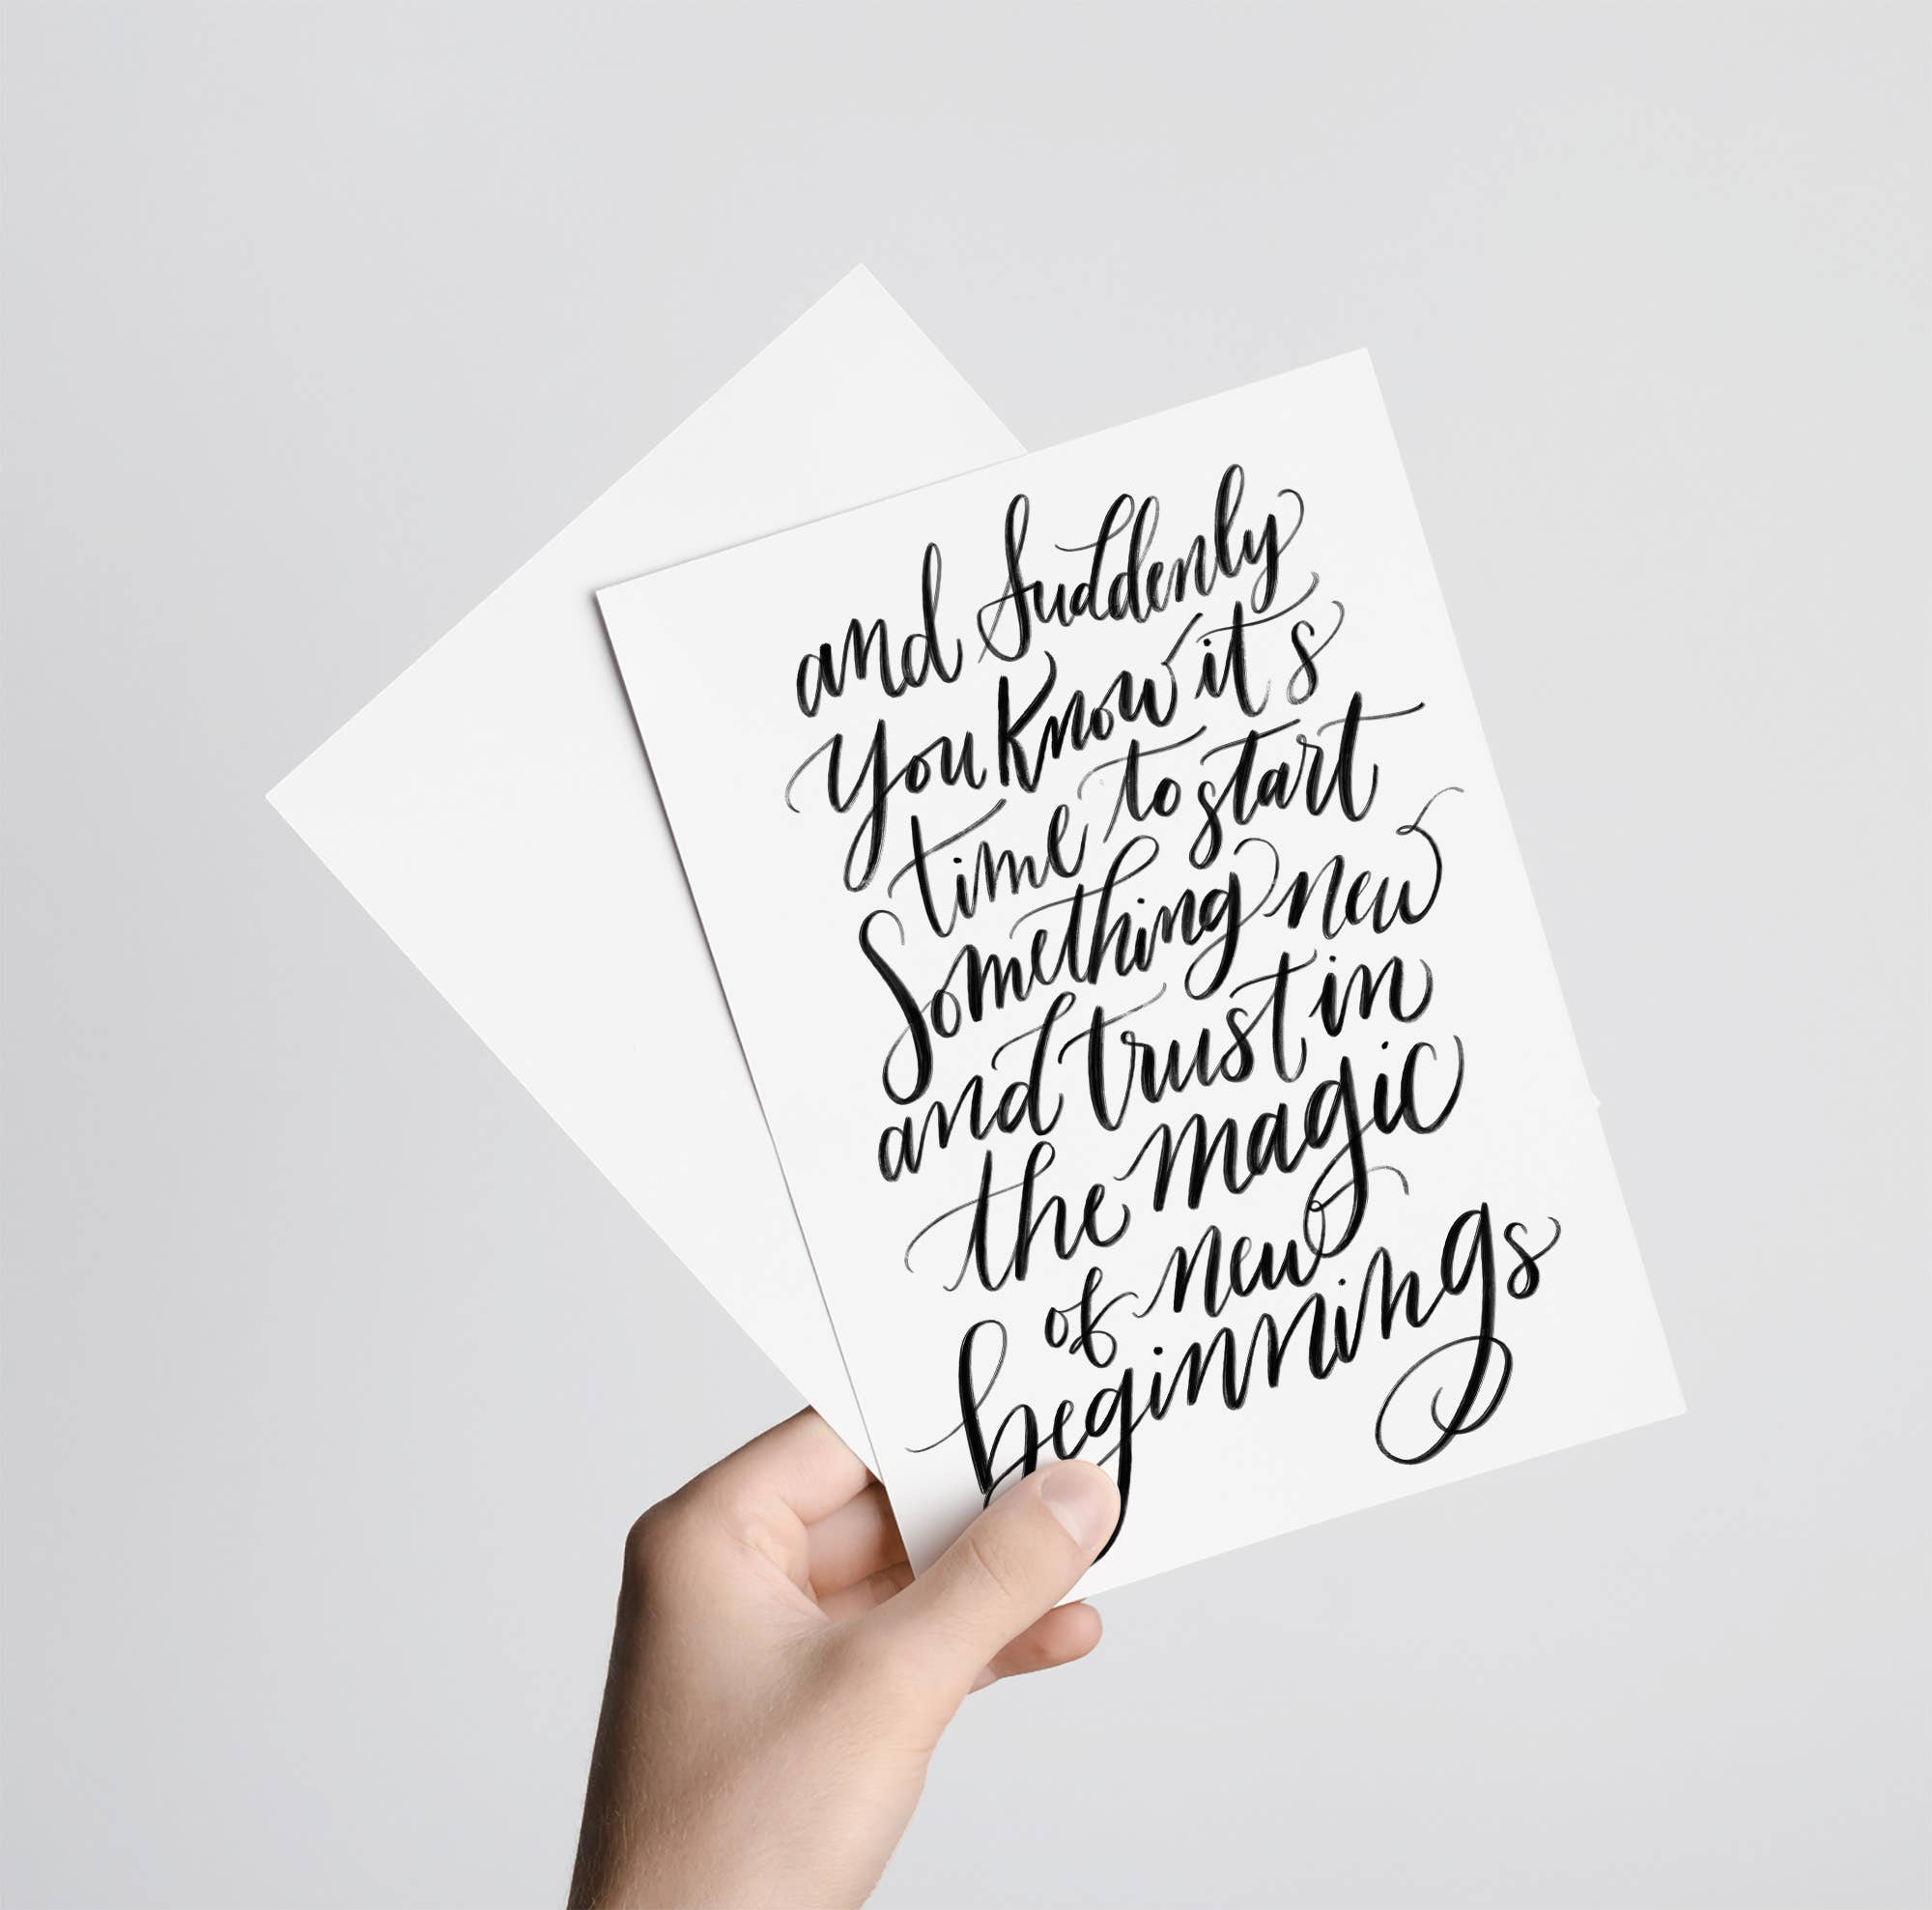 and Suddenly
you Know it's
time to start
Something new
and trust in
the magic
of new
beginnings